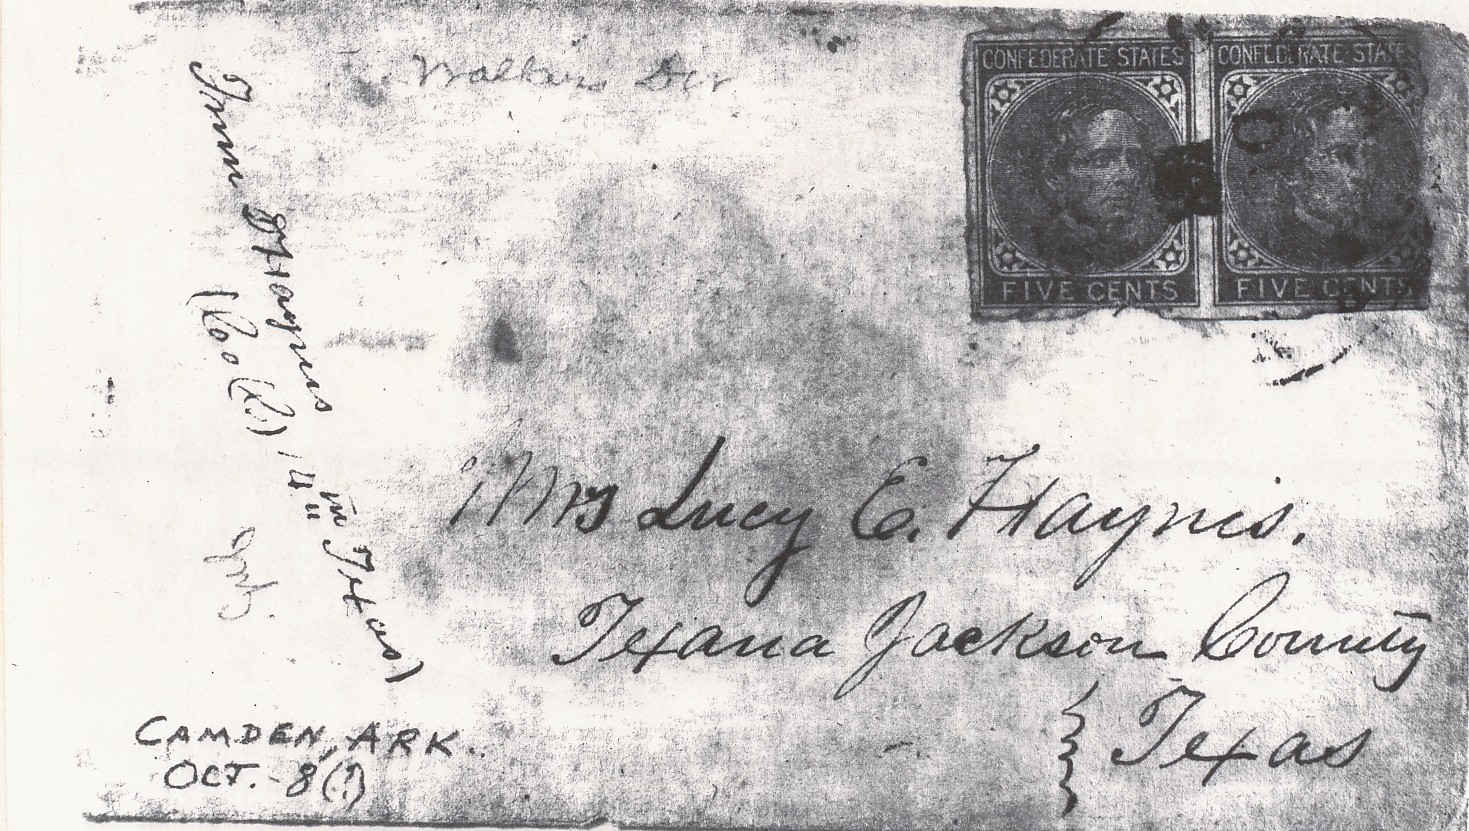 Walkers Div
CONFEDERATE STATES
FIVE CENTS
CONFEDERATE STATES
FIVE CENTS
From Haynis
(Co (K), 14th Texas)
Mrs Lucy E. Haynis.
Texana Jackson County
Texas
CAMDEN, ARK.
OCT. - 8(?)